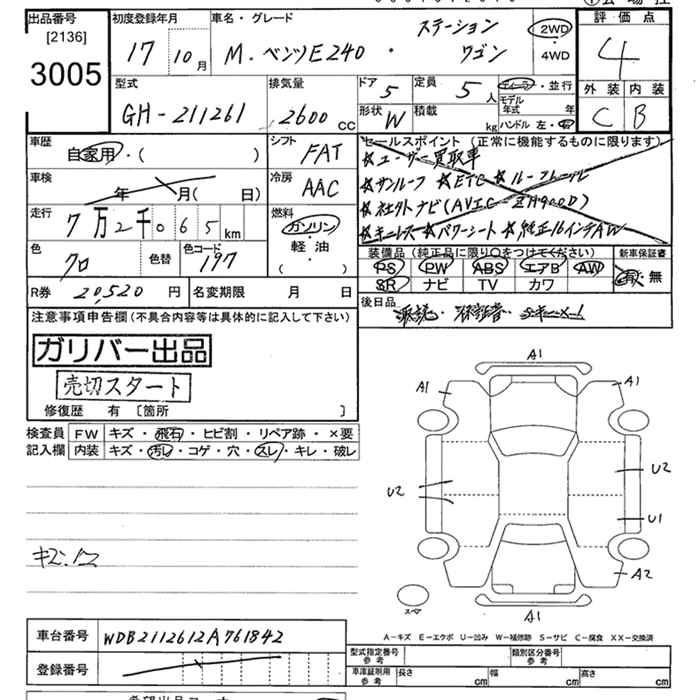 出品番号
[2136]
3005
初度登録年月
17 10月
車名・グレード
M.ベンツE240 ・ ステーション
ワゴン
2WD
・
4WD
評価点
4
外装 内装
C B
型式
GH-211261
排気量
2600 cc
ドア 5
定員 5人
形状 W
積載 kg
ディーラー・並行
モデル
年式 年
ハンドル 左・右
車歴
自家用・( )
シフト
FAT
車検
年 月( 日)
冷房
AAC
走行
7万2千065km
燃料
ガソリン
軽・油
( )
色
クロ
色替
色コード
197
セールスポイント (正常に機能するものに限ります)
★ユーザー買取車
★サンルーフ ★ETC ★ルーフレール
★社外ナビ(AVIC-ZH900D)
★キーレス★パワーシート★純正16インチAW
装備品 (純正品に限り○をつけてください)
PS PW ABS エアB AW
SR ナビ TV カワ
新車保証書
有・無
R券 20,520円
名変期限 月 日
後日品
注意事項申告欄(不具合内容等は具体的に記入して下さい)
ガリバー出品
売切スタート
修復歴 有 [箇所 ]
検査員
記入欄
FW キズ・飛石・ヒビ割・リペア跡・×要
内装 キズ・汚レ・コゲ・穴・スレ・キレ・破レ
A1
A1
A1
U2
U2
U1
A2
A1
スペア
キズ.凹
A－キズ E－エクボ U－凹み W－補修跡 S－サビ C－腐食 XX－交換済
車台番号
WDB2112612A761842
登録番号
型式指定番号
参考
類別区分番号
参考
車庫証明用
参考
長さ cm
幅 cm
高さ cm